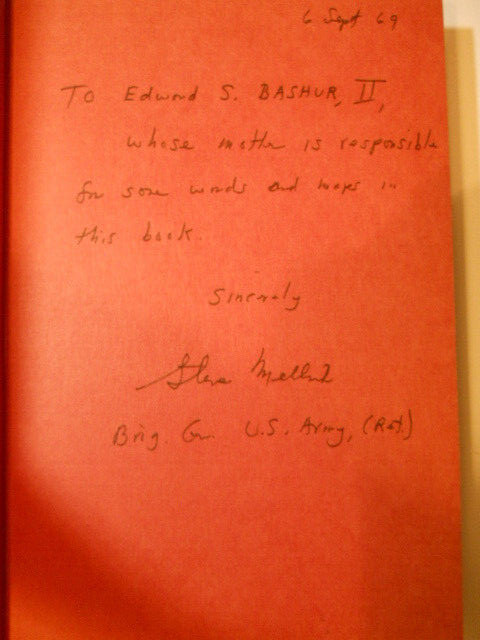 6 Sept 69
To Edward S. BASHUR, II,
whose mother is responsible
for some words and maps in
this book.
Sincerely
Steve Mellnik
Brig. Gen. U.S. Army, (Ret.)